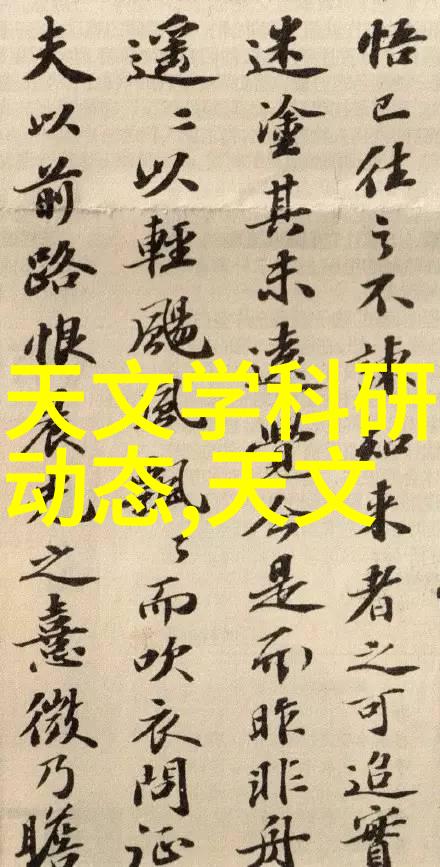 悟已往之不諫知來者之可追實
迷塗其未遠覺今是而昨非舟
遥〻以輕颺風飄〻而吹衣問征
夫以前路恨晨光之熹微乃瞻
天文学科研
动态,天文